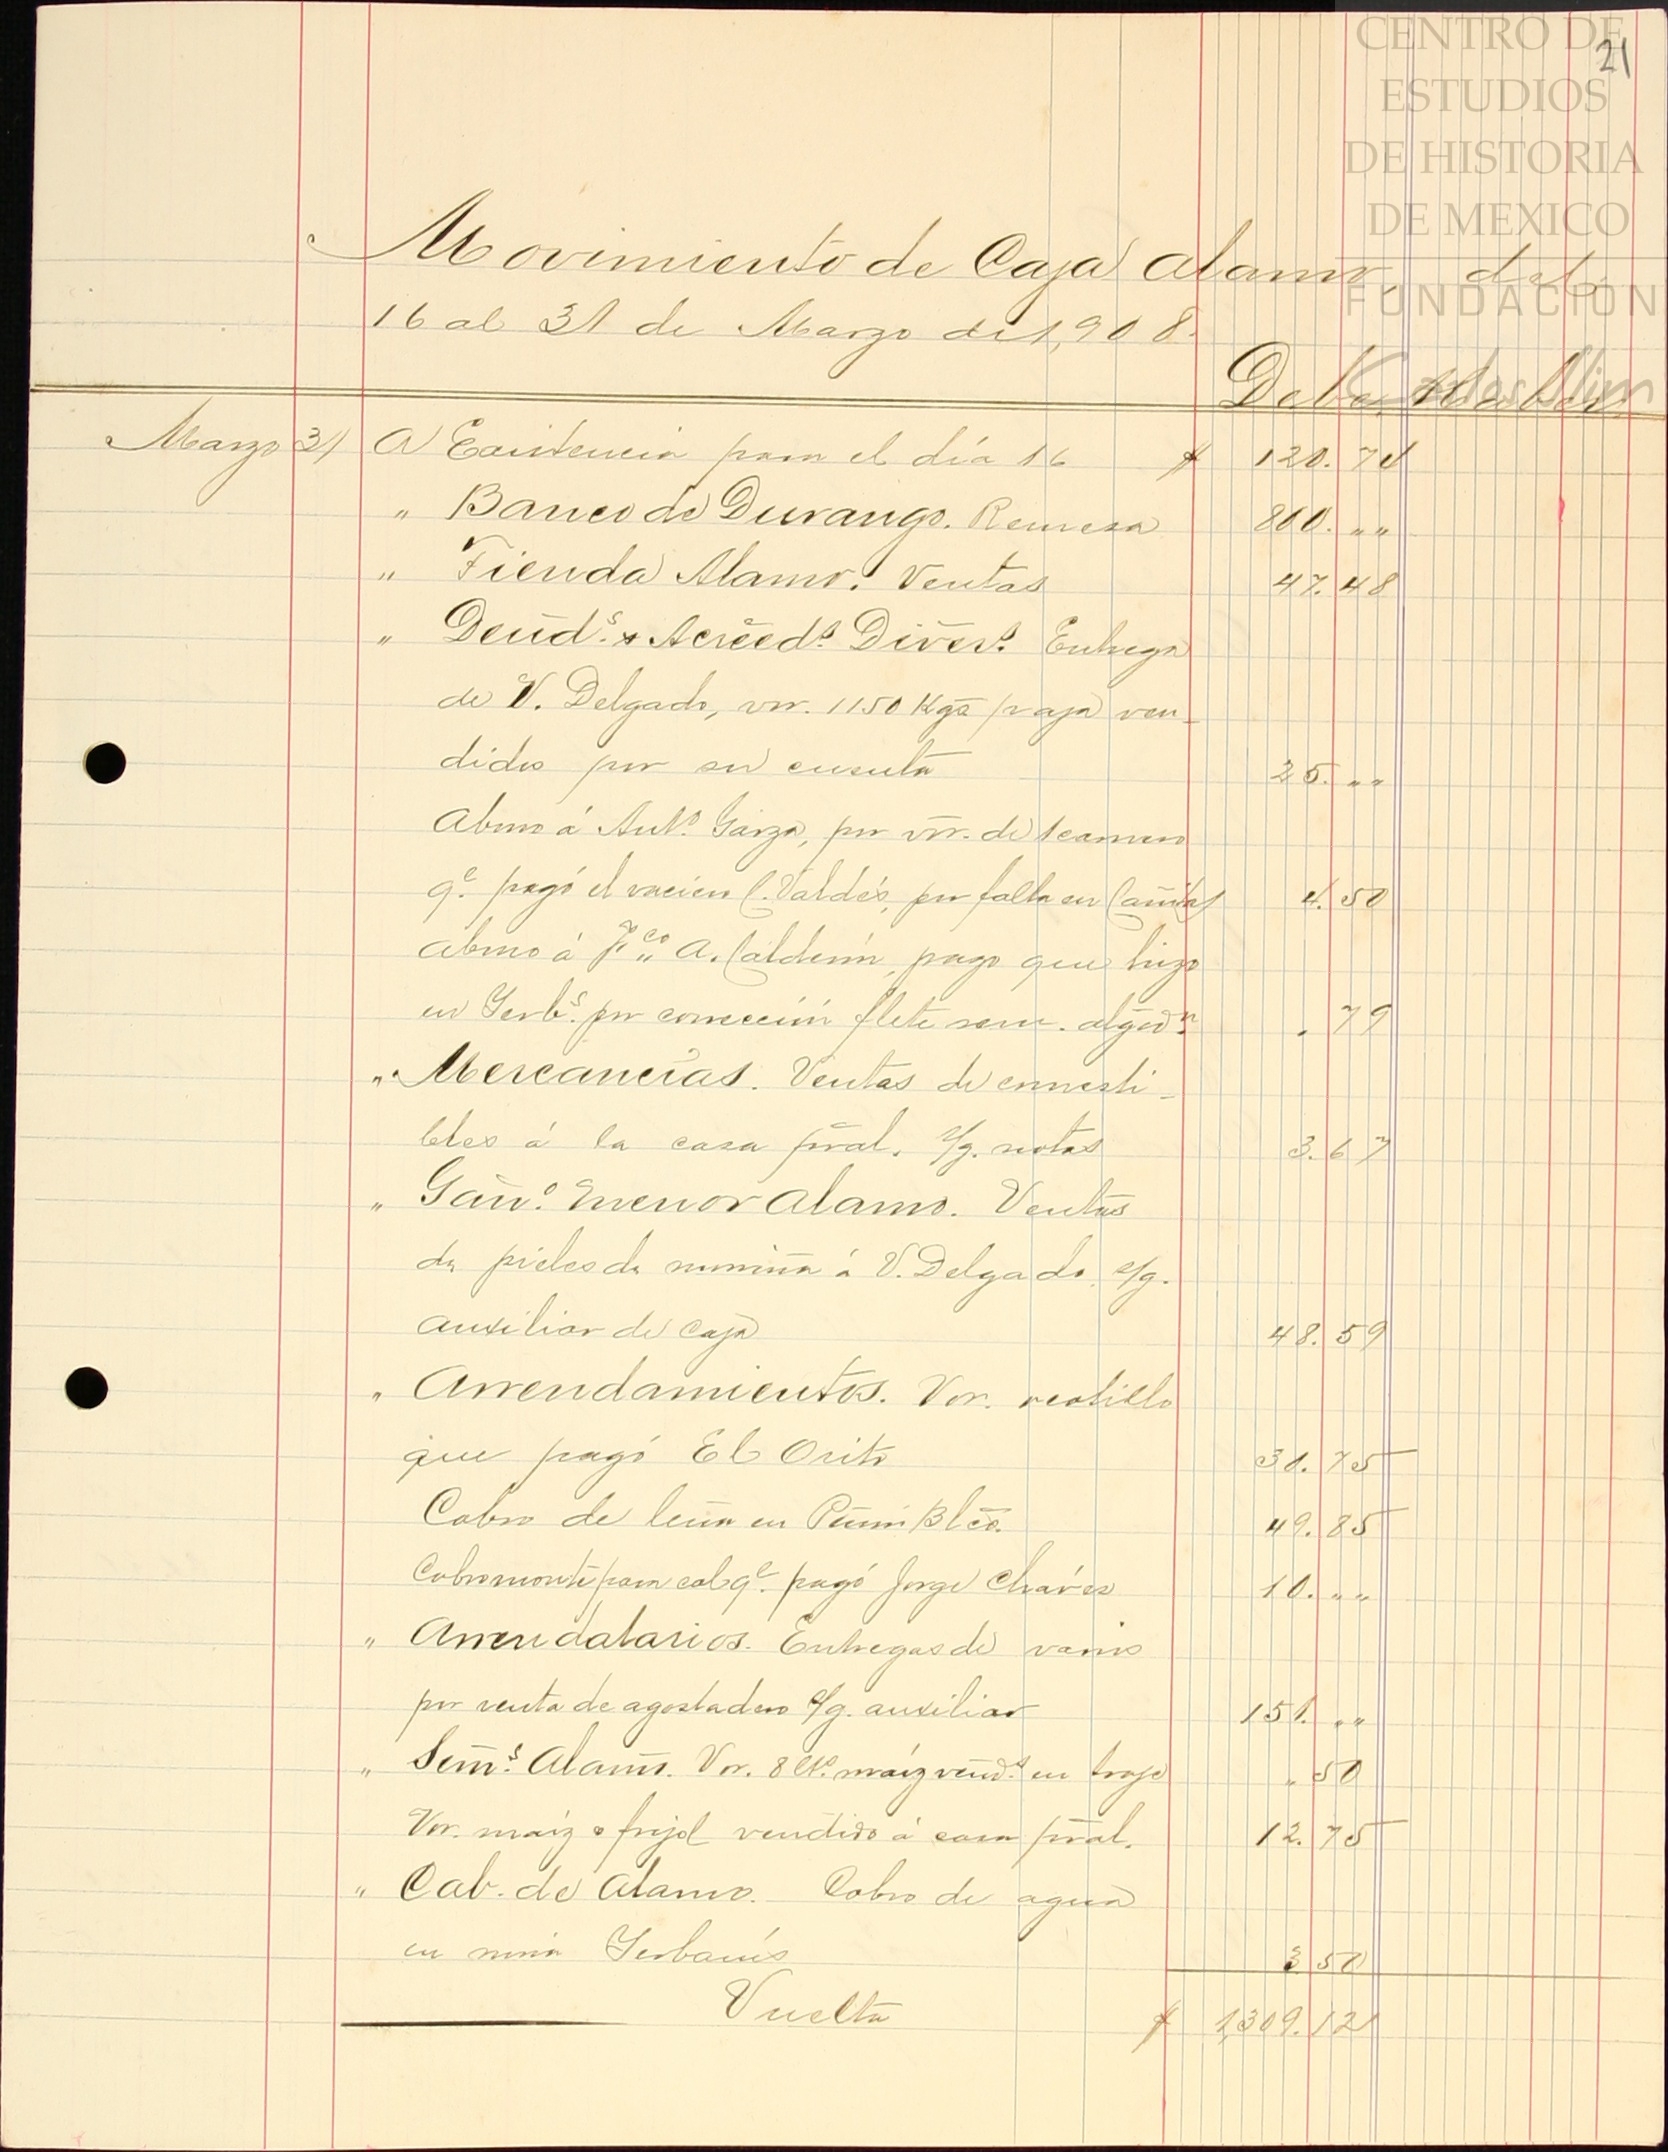 CENTRO DE
ESTUDIOS
DE HISTORIA
DE MEXICO
FUNDACIÓN
Carlos Slim
21
Movimiento de Caja Alamo, del
16 al 31 de Marzo de 1,908.
Debe Haber
Marzo 31 A Existencia para el día 16 $ 120.74
" Banco de Durango. Remesa 800. ""
" Tienda Alamo. Ventas 47.48
" Deud.s & Acreed.s Divers.s Entrega
de V. Delgado, vor. 1150 Kgs paja ven-
didos por su cuenta 25. ""
Abono á Ant.o Garza, por vor. de 1 carnero
q.e pagó el vaciero C. Valdés, por falta en Cañitas 4.50
Abono á F.co A. Calderón, pago que hizo
en Yerb.s por corrección flete sem. algod.n . 79
" Mercancías. Ventas de comesti-
bles á la casa pral. s/g. notas 3.67
" Gan.o menor Alamo. Ventas
de pieles de ... á V. Delgado, s/g.
auxiliar de Caja 48.59
" Arrendamientos. Vor. reatillo
que pagó El Orito 30.75
Cobro de leña en Peñón Blco. 49.85
Cobro monte para cal q.e pagó Jorge Cháves 10. ""
" Arrendatarios. Entregas de varios
por renta de agostadero s/g. auxiliar 151. ""
" Sem.s Alamo. Vor. 8 lts. maíz vend.s en troje " 50
Vor. maíz & frijol vendido á casa pral. 12.75
" Cab. de Alamo. Cobro de agua
en noria Yerbanís 3 50
Vuelta $ 1,309.12